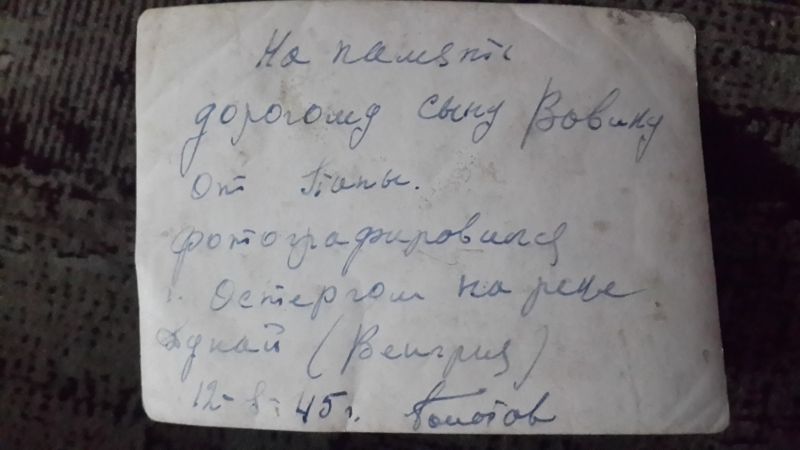 На память
дорогому сыну Вовику
От Папы.
фотографировался
г. Остергом на реке
Дунай (Венгрия)
12-V-45г.